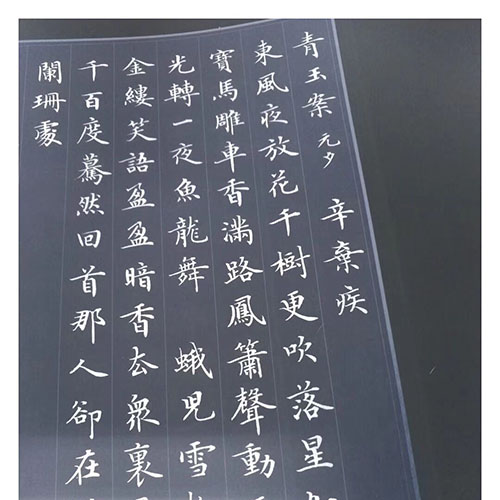 青玉案 元夕 辛棄疾
東風夜放花千樹更吹落星
寶馬雕車香滿路鳳簫聲動
光轉一夜魚龍舞 蛾兒雪
金縷笑語盈盈暗香去衆裏
千百度驀然回首那人卻在
闌珊處